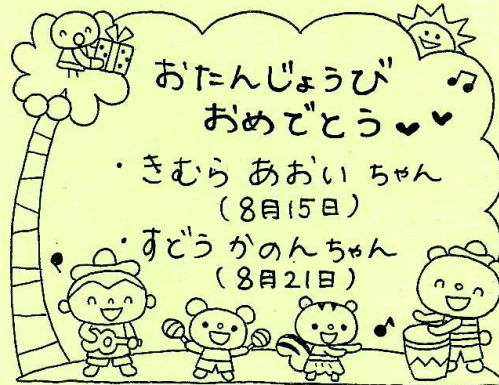 おたんじょうび
おめでとう
・きむら あおい ちゃん
(8月15日)
・すどう かのんちゃん
(8月21日)